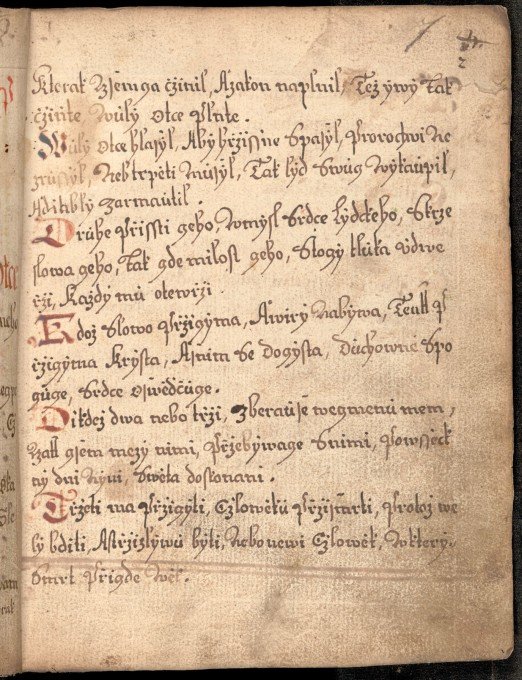 2
Kterak Wssemga cžinil, Azakon naplnil, Též ywý tak
cžinte, Wuly Otce plnte.
Wůly Otce hlasyl, Aby hržissne Spasyl, Proroctwi Ne
zrussyl, Neb trpěti Musyl, Tak lyd Swůg Wykaupil,
Aďábly zarmautil.
Druhe Přissti geho, Wmysl Srdce lydckeho, Skrze
slowa geho, Tak gde milost geho, Stogy kluka Vdwe
rži, Každy mu otewrži.
Kdož Slowo Pržigyma, Awiry Nabywa, Teutt P
ržigyma Krysta, Asnim Se Dogysta, Duchowne Spo
guge, Srdce Oswědčuge.
Dikdez dwa nebo trži, Zberausse wegmenu mem,
zatt gsem mezy nimi, Pržebywage Snimi, Powsseck
ny dni Nyni, Swěta dokonani.
Tržeti ma Pržigyti, Cžlowěku Pržismrti, Protoz we
ly bditi, Astržizlywu byti, Nebo newi Cžlowěk, Wktery
Smrt Prigde Wěk.